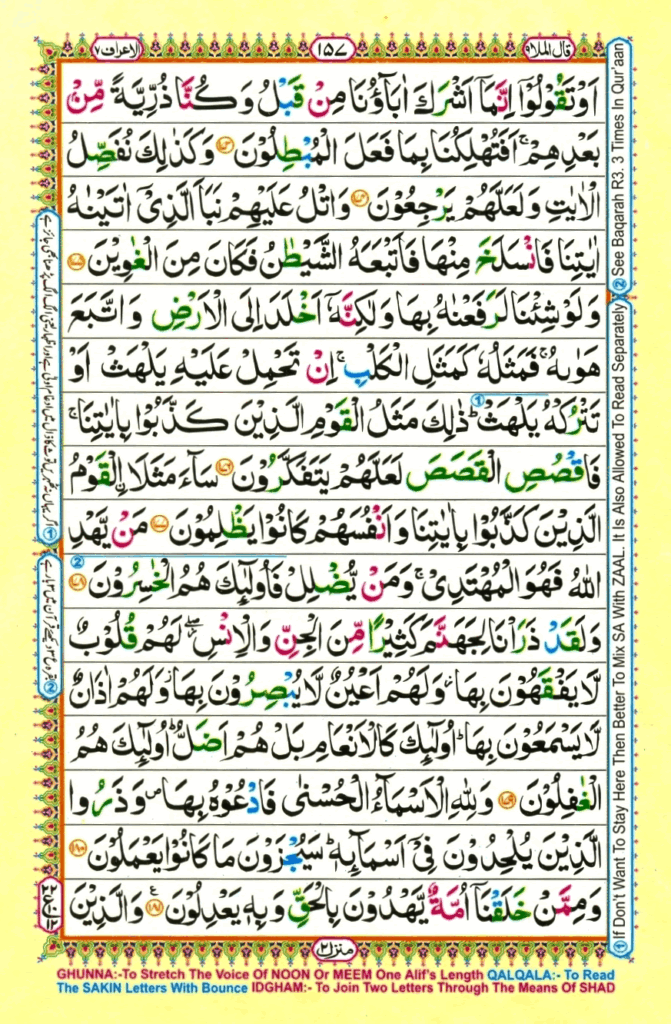 الاعراف ۷
۱۵۷
قال الملا ۹
اَوْ تَقُوْلُوْۤا اِنَّمَاۤ اَشْرَكَ اٰبَآؤُنَا مِنْ قَبْلُ وَ كُنَّا ذُرِّیَّةً مِّنْۢ
بَعْدِهِمْ ۚ اَفَتُهْلِكُنَا بِمَا فَعَلَ الْمُبْطِلُوْنَ ﴿۱۷۳﴾ وَ كَذٰلِكَ نُفَصِّلُ
الْاٰیٰتِ وَ لَعَلَّهُمْ یَرْجِعُوْنَ ﴿۱۷۴﴾ وَ اتْلُ عَلَیْهِمْ نَبَاَ الَّذِیْۤ اٰتَیْنٰهُ
اٰیٰتِنَا فَانْسَلَخَ مِنْهَا فَاَتْبَعَهُ الشَّیْطٰنُ فَكَانَ مِنَ الْغٰوِیْنَ ﴿۱۷۵﴾
وَ لَوْ شِئْنَا لَرَفَعْنٰهُ بِهَا وَ لٰكِنَّهٗۤ اَخْلَدَ اِلَی الْاَرْضِ وَ اتَّبَعَ
هَوٰىهُ ۚ فَمَثَلُهٗ كَمَثَلِ الْكَلْبِ ۚ اِنْ تَحْمِلْ عَلَیْهِ یَلْهَثْ اَوْ
تَتْرُكْهُ یَلْهَثْ ؕ ① ذٰلِكَ مَثَلُ الْقَوْمِ الَّذِیْنَ كَذَّبُوْا بِاٰیٰتِنَا ۚ
فَاقْصُصِ الْقَصَصَ لَعَلَّهُمْ یَتَفَكَّرُوْنَ ﴿۱۷۶﴾ سَآءَ مَثَلَاۨ الْقَوْمُ
الَّذِیْنَ كَذَّبُوْا بِاٰیٰتِنَا وَ اَنْفُسَهُمْ كَانُوْا یَظْلِمُوْنَ ﴿۱۷۷﴾ مَنْ یَّهْدِ
اللّٰهُ فَهُوَ الْمُهْتَدِیْ ۚ وَ مَنْ یُّضْلِلْ فَاُولٰٓىِٕكَ هُمُ الْخٰسِرُوْنَ ② ﴿۱۷۸﴾
وَ لَقَدْ ذَرَاْنَا لِجَهَنَّمَ كَثِیْرًا مِّنَ الْجِنِّ وَ الْاِنْسِ ۖ لَهُمْ قُلُوْبٌ
لَّا یَفْقَهُوْنَ بِهَا ؗ وَ لَهُمْ اَعْیُنٌ لَّا یُبْصِرُوْنَ بِهَا ؗ وَ لَهُمْ اٰذَانٌ
لَّا یَسْمَعُوْنَ بِهَا ؕ اُولٰٓىِٕكَ كَالْاَنْعَامِ بَلْ هُمْ اَضَلُّ ؕ اُولٰٓىِٕكَ هُمُ
الْغٰفِلُوْنَ ﴿۱۷۹﴾ وَ لِلّٰهِ الْاَسْمَآءُ الْحُسْنٰی فَادْعُوْهُ بِهَا ۪ وَ ذَرُوا
الَّذِیْنَ یُلْحِدُوْنَ فِیْۤ اَسْمَآىِٕهٖ ؕ سَیُجْزَوْنَ مَا كَانُوْا یَعْمَلُوْنَ ﴿۱۸۰﴾
وَ مِمَّنْ خَلَقْنَاۤ اُمَّةٌ یَّهْدُوْنَ بِالْحَقِّ وَ بِهٖ یَعْدِلُوْنَ ﴿۱۸۱﴾ وَ الَّذِیْنَ
منزل ۲
① If Don't Want To Stay Here Then Better To Mix SA With ZAAL. It Is Also Allowed To Read Separately ② See Baqarah R3. 3 Times In Qur'aan
GHUNNA:-To Stretch The Voice Of NOON Or MEEM One Alif's Length QALQALA:- To Read
The SAKIN Letters With Bounce IDGHAM:- To Join Two Letters Through The Means Of SHAD